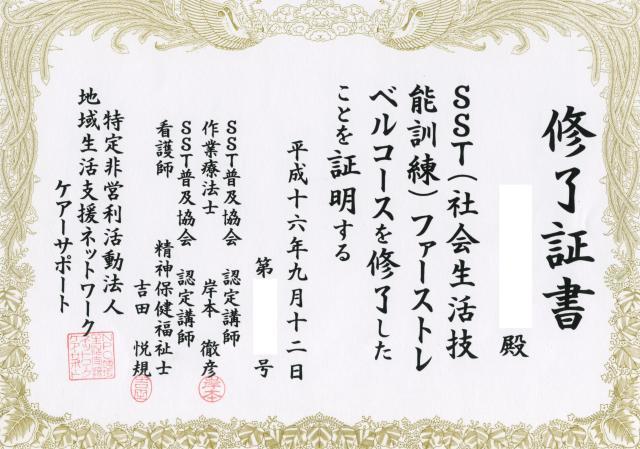 修了証書
殿
SST(社会生活技
能訓練)ファーストレ
ベルコースを修了した
ことを証明する
平成十六年九月十二日
第 号
SST普及協会 認定講師
作業療法士 岸本 徹彦
SST普及協会 認定講師
看護師 精神保健福祉士
吉田 悦規
特定非営利活動法人
地域生活支援ネットワーク
ケアーサポート
岸本